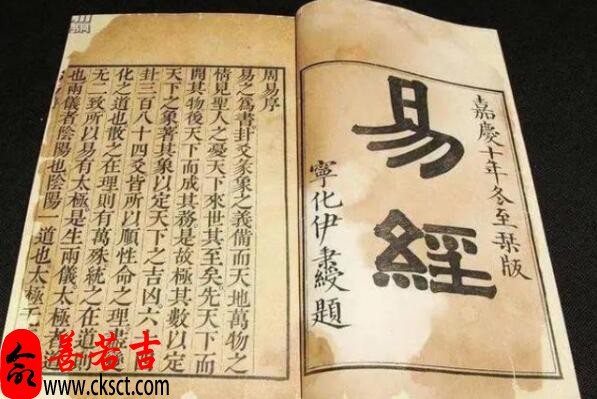 嘉慶十年冬至栞版
易經
寧化伊秉綬題
周易序
易之為書卦爻彖象之義備而天地萬物之
情見聖人之憂天下來世其至矣先天下而
開其物後天下而成其務是故極其數以定
天下之象著其象以定天下之吉凶六
卦三百八十四爻皆所以順性命之理盡
化之道也散之在理則有萬殊統之在道則
无二致所以易有太極是生兩儀太極者道
也兩儀者陰陽也陰陽一道也太極
善若吉
www.cksct.com